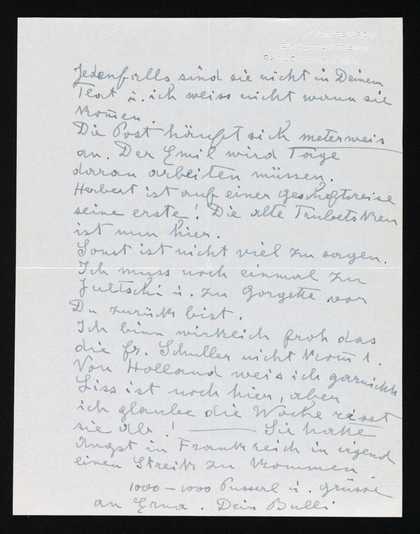 Jedenfalls sind sie nicht in Deinem
Text u. ich weiss nicht wann sie
kom̄en.
Die Post häuft sich meterweis
an. Der Emil wird Tage
daran arbeiten müssen.
Herbert ist auf einer Geschäftsreise
seine erste! Die alte
ist nun hier.
Sonst ist nicht viel zu sagen.
Ich muss noch einmal zu
Jultschi u. zu Gorgette vor
Du zurück bist.
Ich binn wirklich froh das
die fr. Schuller nicht kom̄t.
Von Holland weis ich garnichts
Liss ist noch hier, aber
ich glaube die Woche reisst
sie ab! — Sie hatte
Angst in Frankreich in irgend
einen Streik zu kommen.
1000 – 1000 Pusserl u. grüsse
an Erna. Dein Bulli